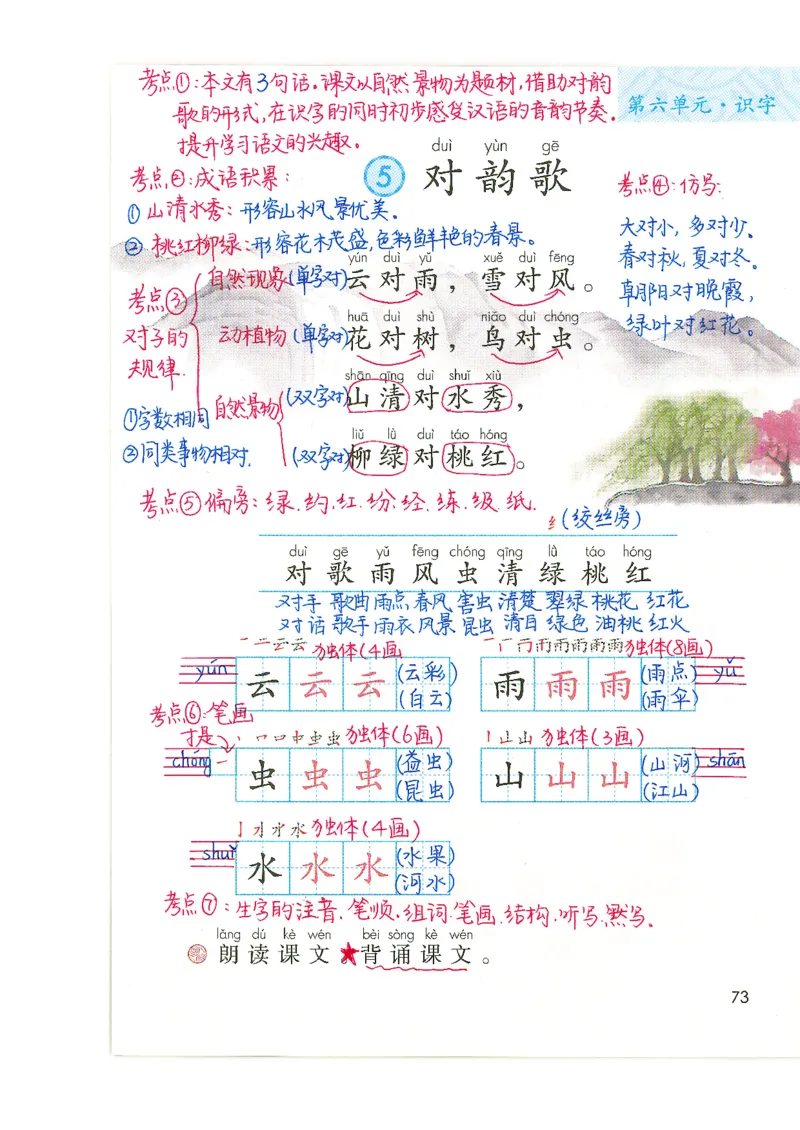 考点①:本文有3句话。课文以自然景物为题材,借助对韵
歌的形式,在识字的同时初步感受汉语的音韵节奏。
提升学习语文的兴趣。
第六单元·识字
duì yùn gē
5 对韵歌
考点②:成语积累:
①山清水秀:形容山水风景优美。
②桃红柳绿:形容花木茂盛,色彩鲜艳的春景。
考点④:仿写:
大对小,多对少。
春对秋,夏对冬。
朝阳对晚霞,
绿叶对红花。
考点③
对子的
规律.
①字数相同
②同类事物相对.
自然现象(单字对)
yún duì yǔ xuě duì fēng
云对雨,雪对风。
动植物(单字对)
huā duì shù niǎo duì chóng
花对树,鸟对虫。
自然景物
(双字对)
shān qīng duì shuǐ xiù
山清对水秀,
(双字对)
liǔ lǜ duì táo hóng
柳绿对桃红。
考点⑤偏旁:绿.约.红.纷.经.练.级.纸.
纟(绞丝旁)
duì gē yǔ fēng chóng qīng lǜ táo hóng
对 歌 雨 风 虫 清 绿 桃 红
对手 歌曲 雨点 春风 害虫 清楚 翠绿 桃花 红花
对话 歌手 雨衣 风景 昆虫 清日 绿色 油桃 红火
独体(4画
yún 云 云 云 (云彩)
(白云)
独体(8画)
雨 雨 雨 (雨点) yǔ
(雨伞)
考点⑥:笔画
才是
独体(6画)
chóng 虫 虫 虫 (益虫)
(昆虫)
独体(3画)
山 山 山 (山河) shān
(江山)
独体(4画)
shuǐ 水 水 水 (水果)
(河水)
考点⑦:生字的注音.笔顺.组词.笔画.结构.听写.默写.
lǎng dú kè wén bèi sòng kè wén
朗读课文。★背诵课文。
73